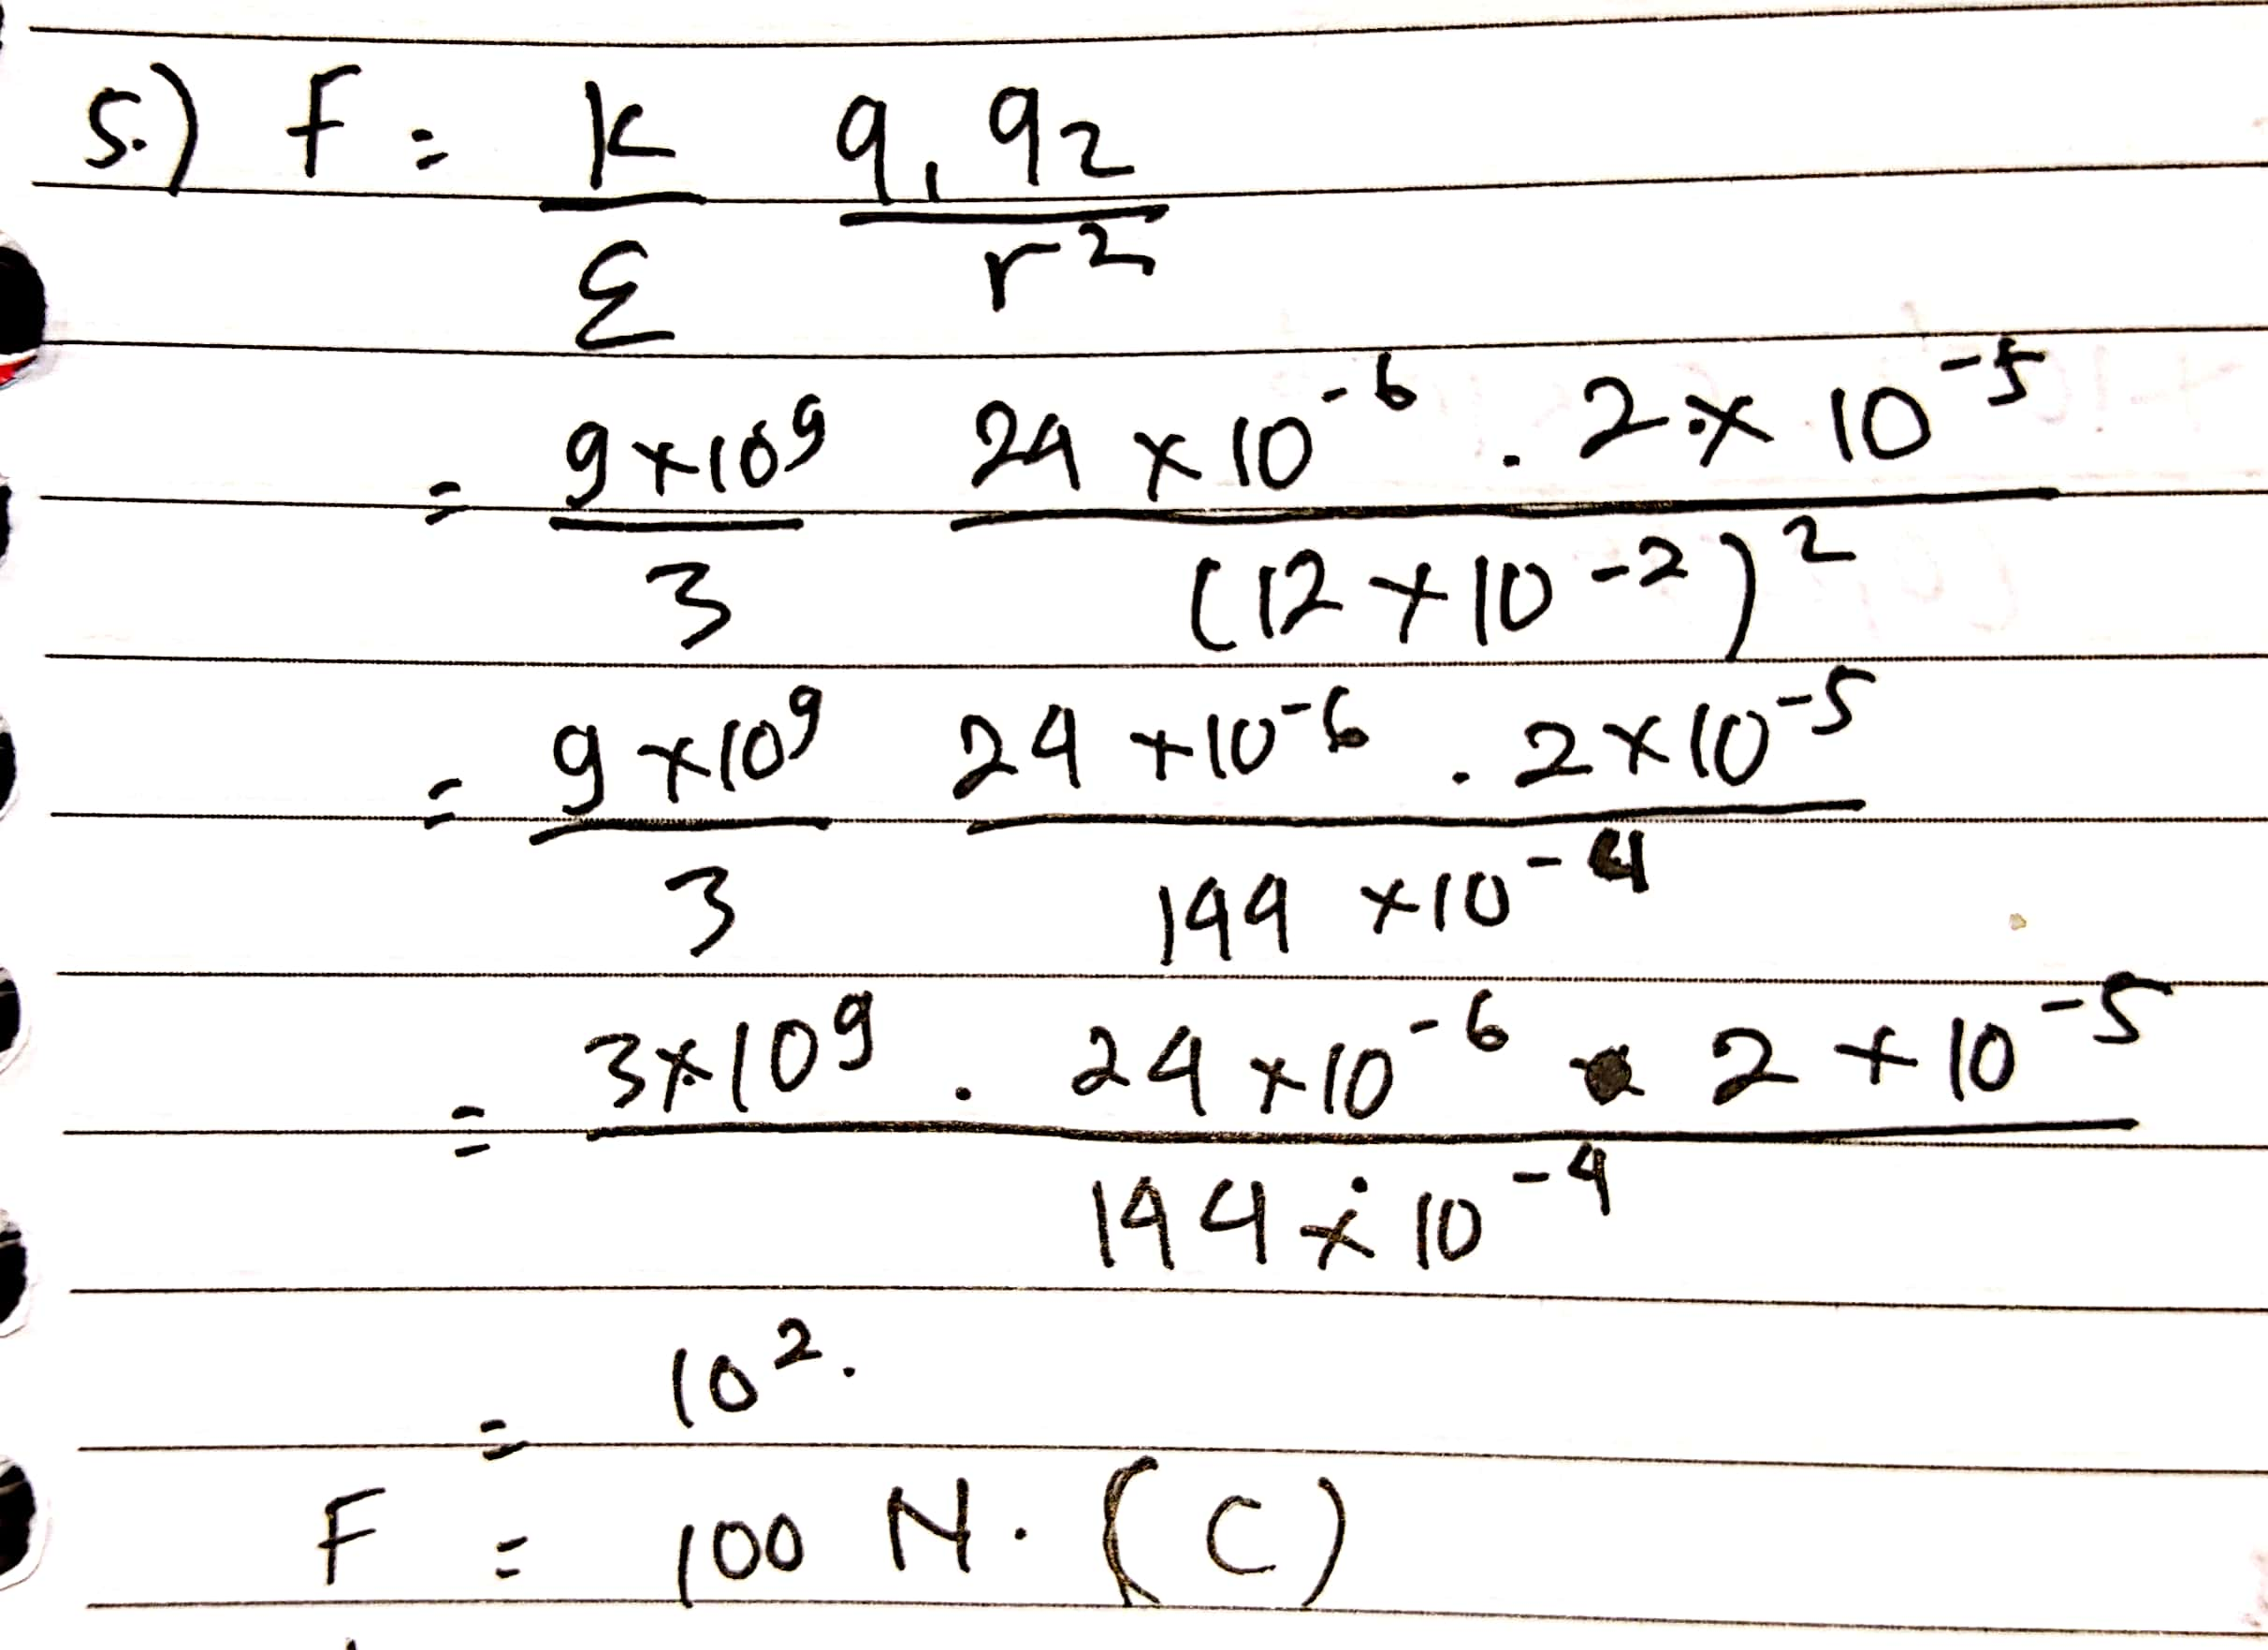 5.) F = k/ε q₁ q₂/r²
= 9×10⁹/3 24 × 10⁻⁶ . 2 × 10⁻⁵/(12 × 10⁻²)²
= 9 × 10⁹/3 24 × 10⁻⁶ . 2 × 10⁻⁵/144 × 10⁻⁴
= 3 × 10⁹ . 24 × 10⁻⁶ . 2 × 10⁻⁵/144 × 10⁻⁴
= 10².
F = 100 N. (C)